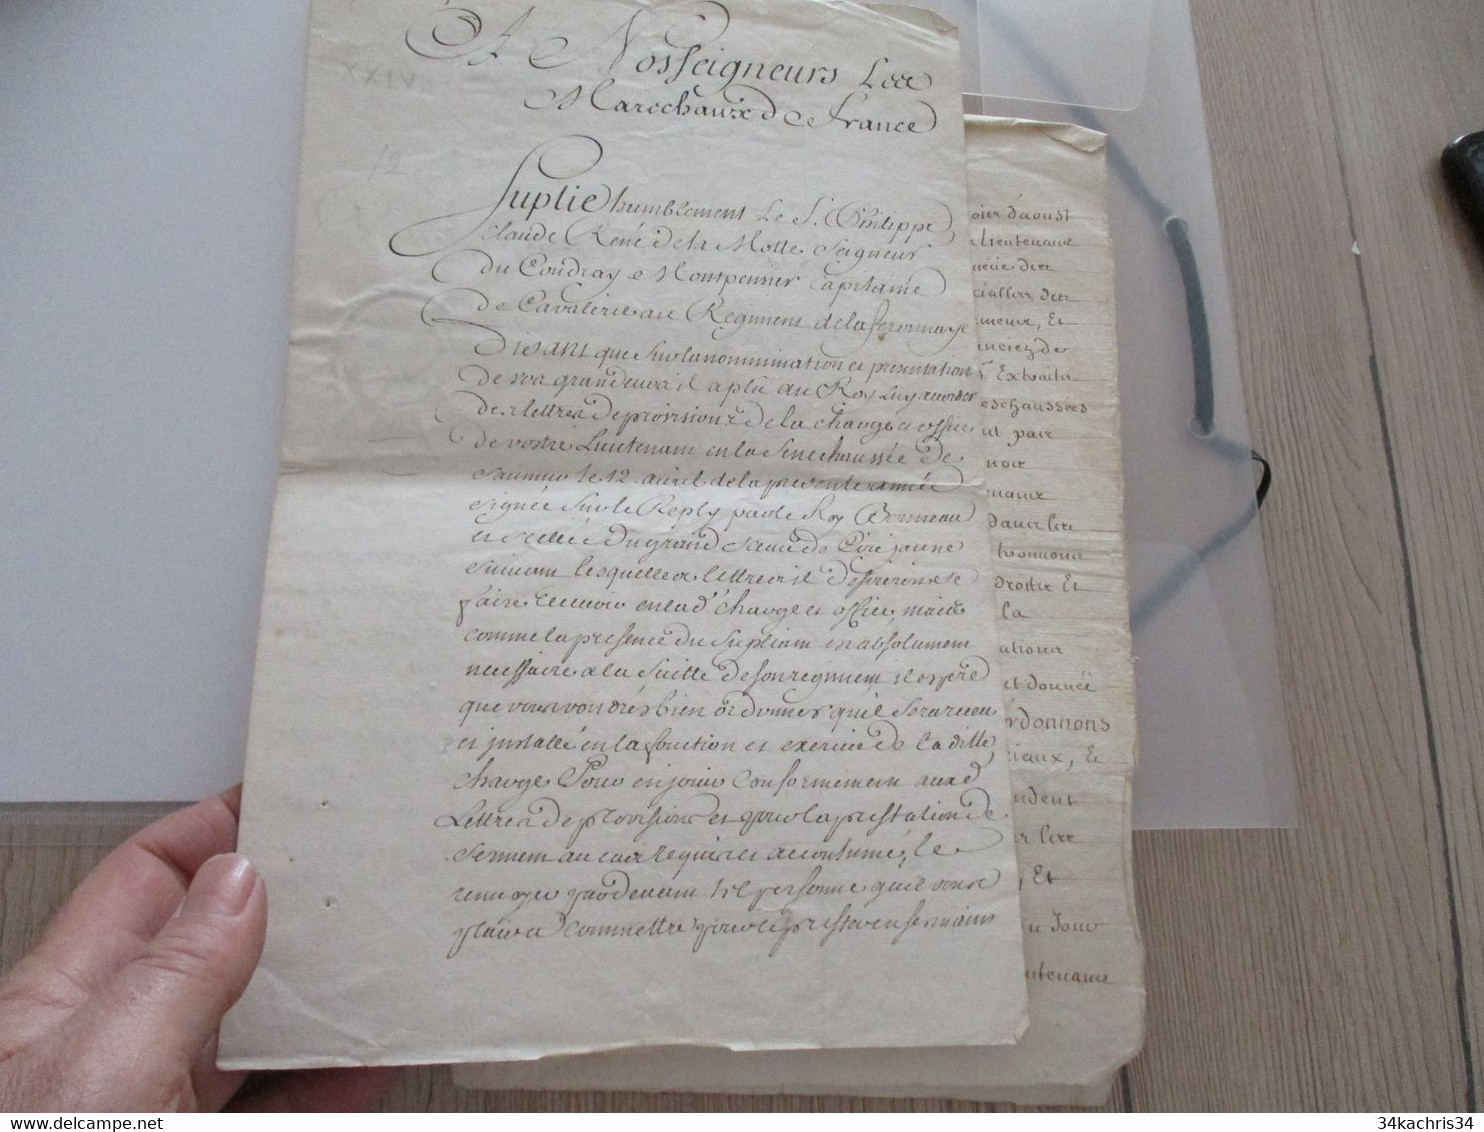 XXIV
12
A Nosseigneurs Les
Marechaux de France
Suplie humblement Le S. Philippe
Claude René de la Motte Seigneur
du Coudray e Montpensier Capitaine
de Cavalerie au Regiment de la feronnaye
Disant que sur la nommination et presentation
de vos grandeurs il a plû au Roy luy accorder
des lettres de provisions de la charge et office
de vostre Lieutenant en la Senechaussée de
Saumur le 12 avril de la presente année
signée sur le Reply par le Roy
et scellée du grand sceau de Cire jaune
suivant lesquelles lettres il desireroit se
faire recevoir en lad charge et office, mais
comme la presence du supliant est absolument
necessaire a la suitte de son regiment il espere
que vous voudrés bien ordonner qu'il sera receu
et installé en la fonction et exercice de la ditte
charge Pour en jouir Conformement aux d
Lettres de provisions et pour la prestation de
serment au cas requis et accoutumé, le
renvoyer pardevant tel personne qu'il vous
plaira commettre pour
d'aoust
Lieutenant
des
des
Et
de
Extraits
eschaussées
pair
d'avec les
droits Et
la
et donnée
rdonnons
, Et
ndent
les
, Et
Jour
utenans
34kachris34